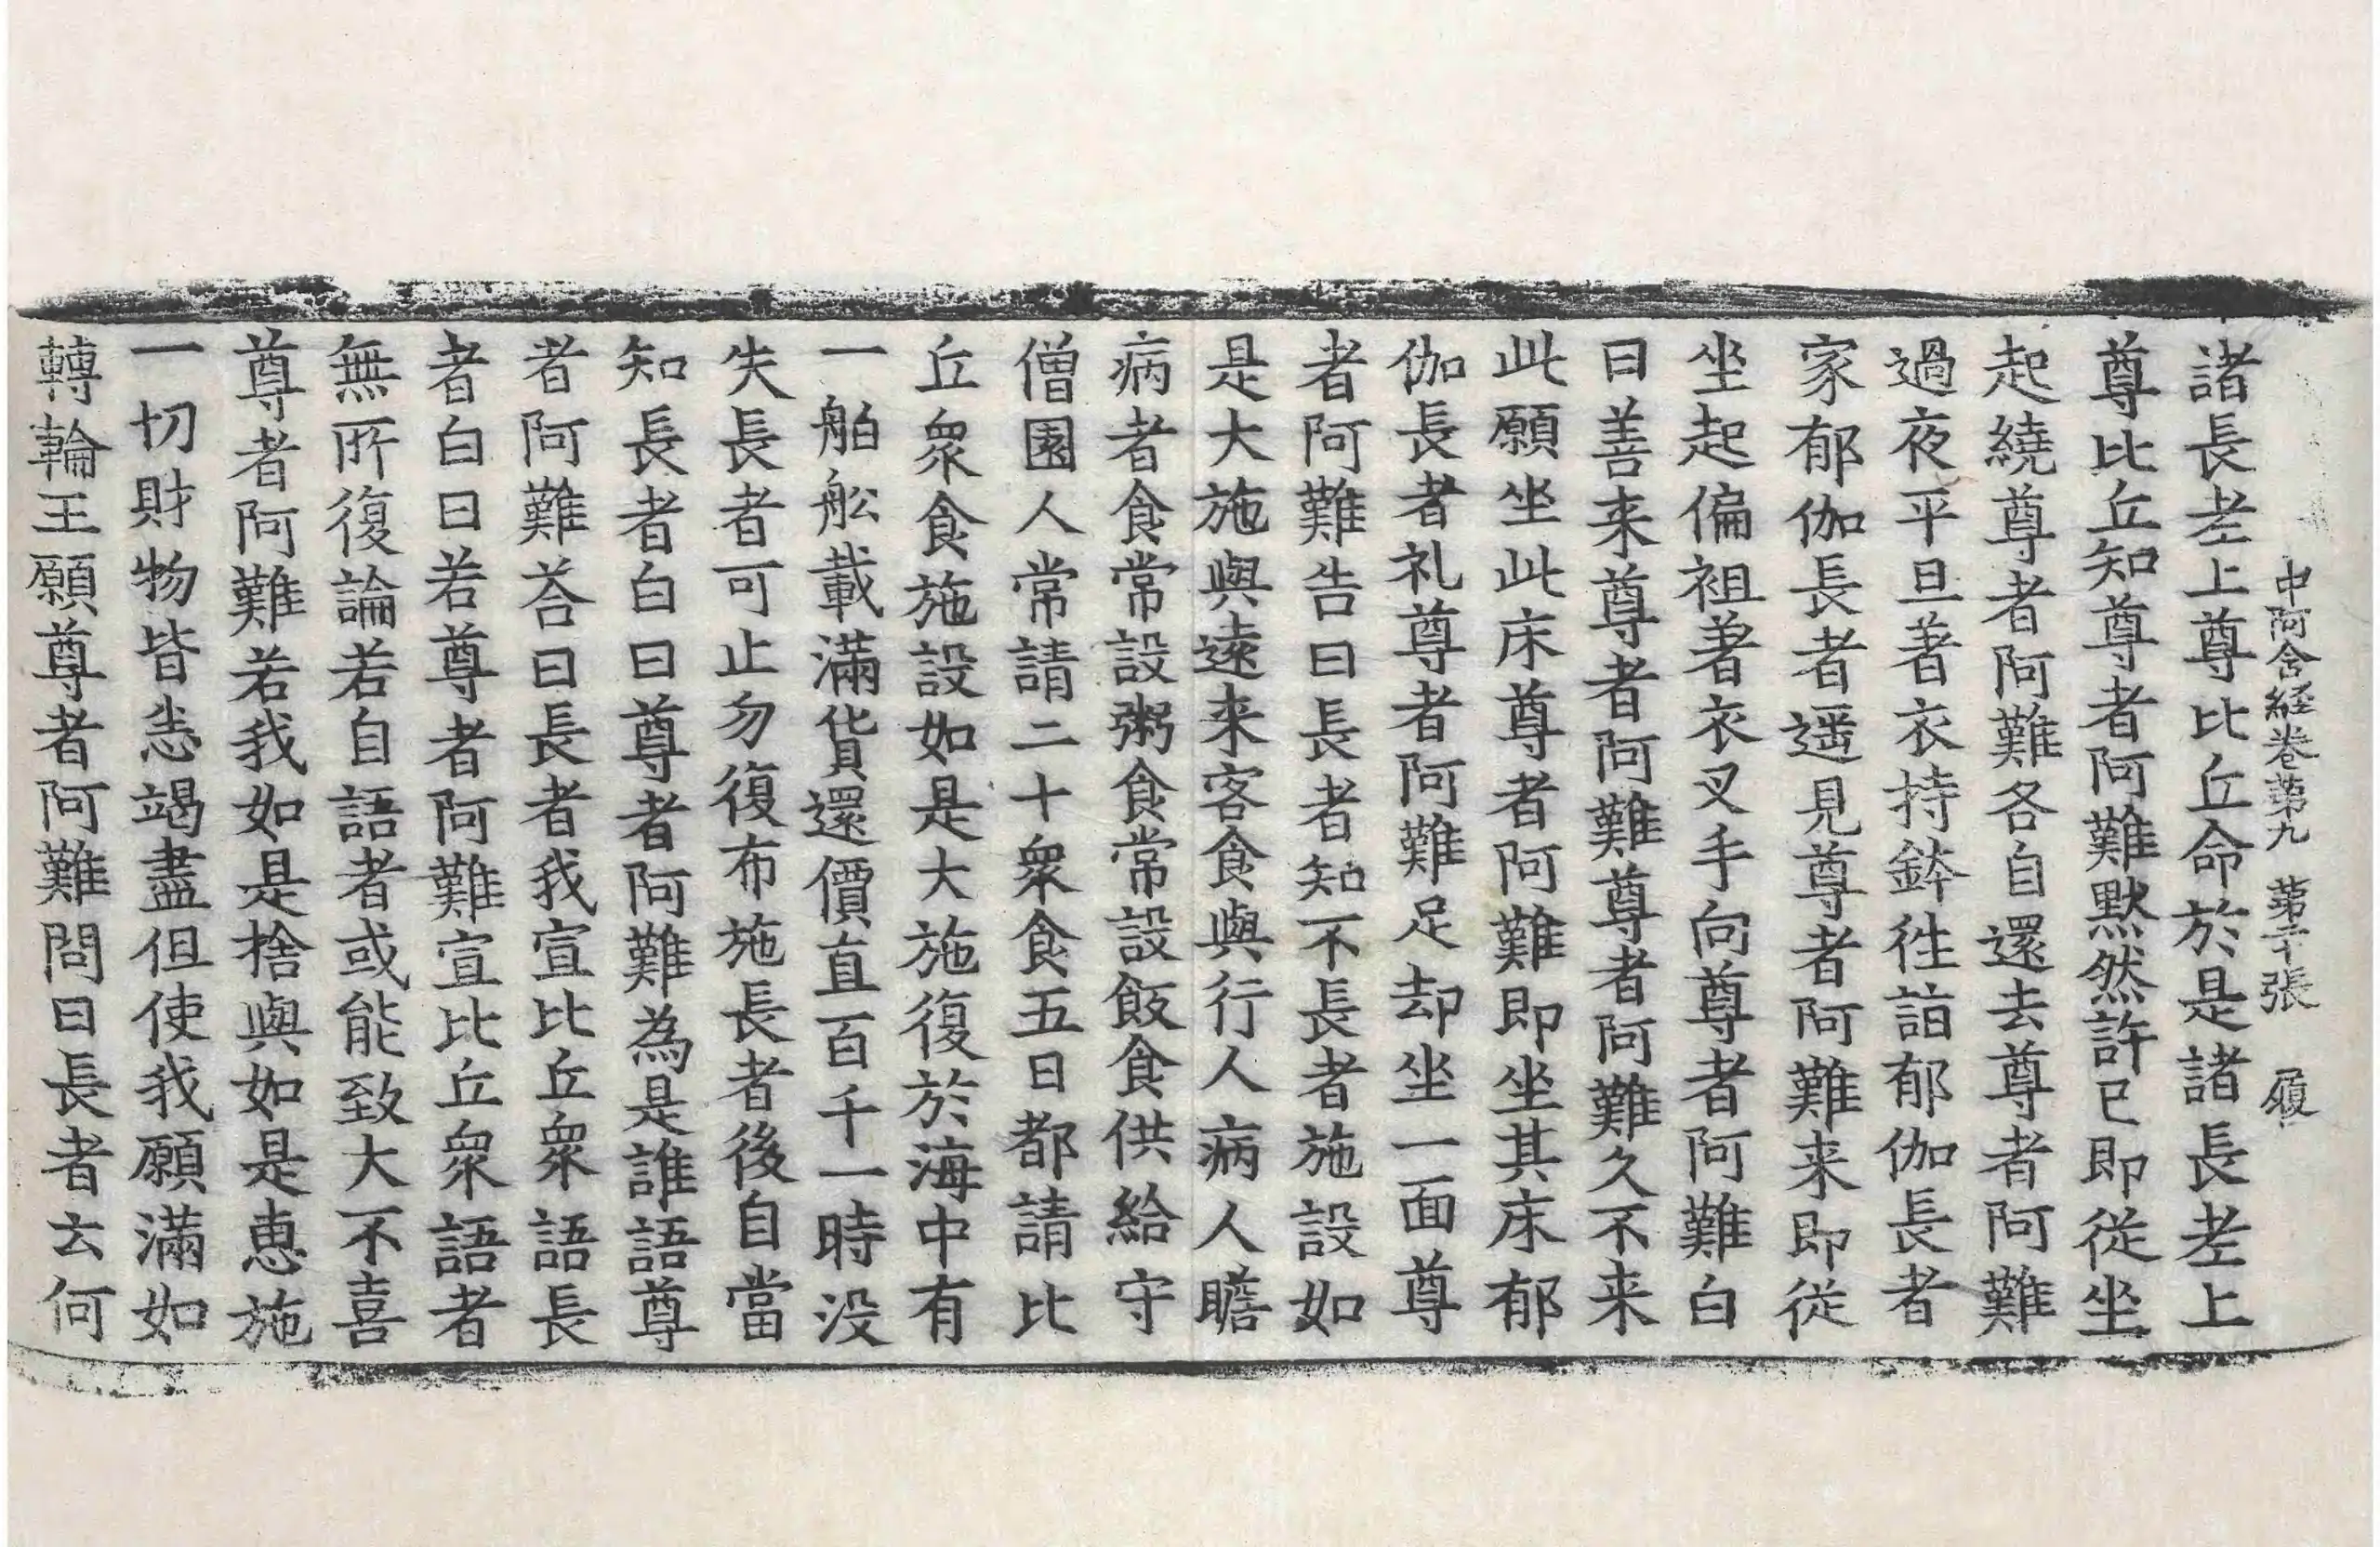 中阿含経卷第九　第二十張　履
諸長老上尊比丘命於是諸長老上
尊比丘知尊者阿難默然許已即從坐
起繞尊者阿難各自還去尊者阿難
過夜平旦著衣持鉢往詣郁伽長者
家郁伽長者遥見尊者阿難来即從
坐起偏袒著衣叉手向尊者阿難白
曰善来尊者阿難尊者阿難久不来
此願坐此床尊者阿難即坐其床郁
伽長者礼尊者阿難足却坐一面尊
者阿難告曰長者知不長者施設如
是大施與遠来客食與行人病人瞻
病者食常設粥食常設飯食供給守
僧園人常請二十衆食五日都請比
丘衆食施設如是大施復於海中有
一舶舩載滿貨還價直百千一時没
失長者可止勿復布施長者後自當
知長者白曰尊者阿難為是誰語尊
者阿難荅曰長者我宣比丘衆語長
者白曰若尊者阿難宣比丘衆語者
無所復論若自語者或能致大不喜
尊者阿難若我如是捨與如是恵施
一切財物皆悉竭盡但使我願滿如
轉輪王願尊者阿難問曰長者云何